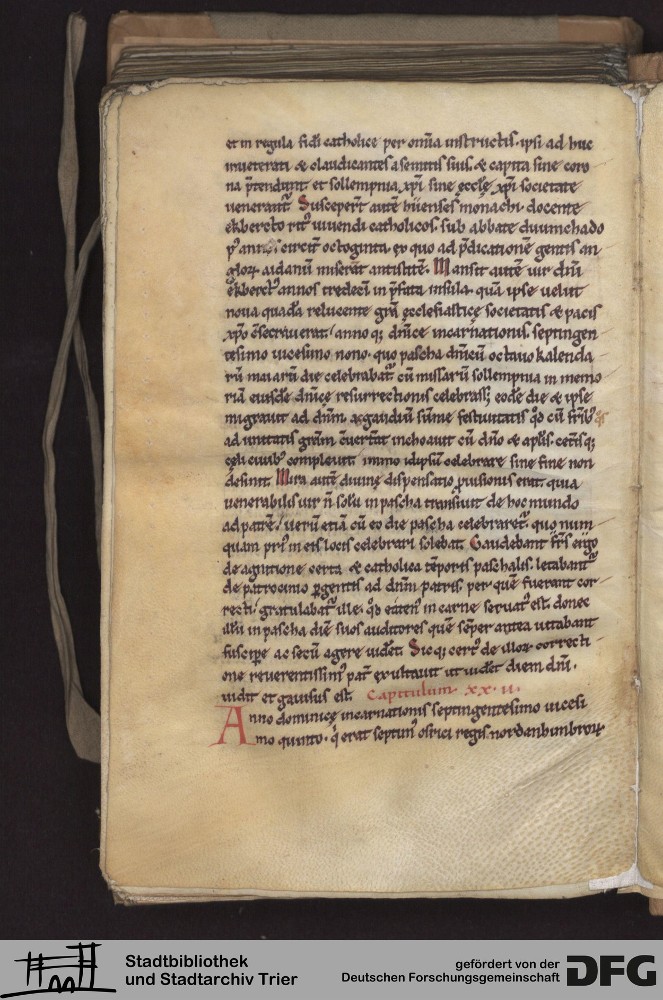 et in regula fidei catholice per om̄ia instructis. ipsi ad huc
inueterati & claudicantes a semitis suis. & capita sine coro
na p̄tendunt et sollempnia xp̄i sine eccl̄ę xp̄i societate
uenerant᷑. Suscepert̄ autē hiienses monachi docente
ekbercto rit᷒ uiuendi catholicos. sub abbate duunchado
p᷒ annos circit᷑ octoginta. ex quo ad p̄dicationē gentis an
gloꝝ aidanū miserāt antistitē. Mansit autē uir dn̄i
ekberct᷒ annos tredecī in p̄fata insula. quā ipse uelut
noua quadā relucente grā ęcclesiasticę societatis & pacis
xp̄o c̄secrauerat. anno q; dn̄icę incarnationis. septingen
tesimo uicesimo nono. quo pascha dn̄icū octauo kalenda
rū maiarū die celebrabat᷑. cū missarū sollempnia in memo
riā eiusdē dn̄icę resurrectionis celebrass&. eodē die & ipse
migrauit ad dn̄m. ac gaudiū sūmę festiuitatis qđ cū frīb᷒ q̄s
ad unitatis grām c̄uert̄at inchoauit cū dn̄o & aplīs. cet̄isq;
cęli ciuib᷒ compleuit. immo idipsū celebrare sine fine non
desinit. Mira autē diuinę dispensatio ꝓuisionis erat. quia
uenerabilis uir n̄ solū in pascha transiuit de hoc mundo
ad patrē. uerū etiā cū eo die pascha celebraret᷑. quo num
quam pri᷒ in eis locis celebrari solebat. Gaudebant fr̄s ergo
de agnitione certa & catholica tēporis paschalis. letabant᷑
de patrocinio ꝑgentis ad dn̄m patris. per quē fuerant cor
recti. gratulabat᷑ ille. qđ eaten᷒ in carne seruat᷒ est. donec
illū in pascha diē suos auditores quē sēper antea uitabant
suscipe ac secū agere uider&. Sicq; cert᷒ de illoꝝ correcti
one reuerentissim᷒ pat᷑ exultauit ut uider& diem dn̄i.
uidit et gauisus est. Capitulum XX.II.
Anno dominicę incarnationis septingentesimo uicesi
mo quinto. q̄ erat septim᷒ osrici regis nordanhimbroꝝ
Stadtbibliothek
und Stadtarchiv Trier
gefördert von der
Deutschen Forschungsgemeinschaft
DFG